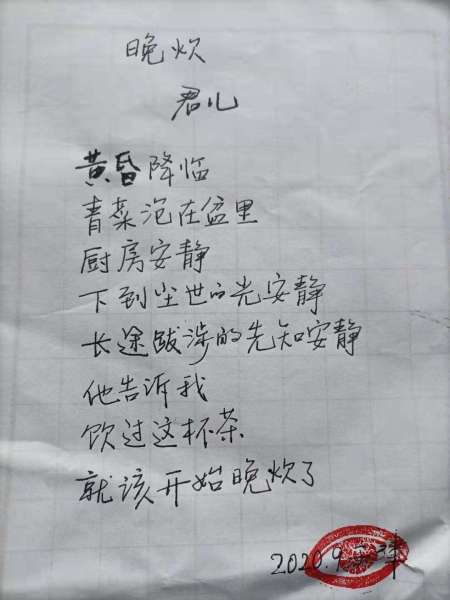 晚炊
君儿
黄昏降临
青菜泡在盆里
厨房安静
下到尘世的光安静
长途跋涉的先知安静
他告诉我
饮过这杯茶
就该开始晚炊了
2020.9